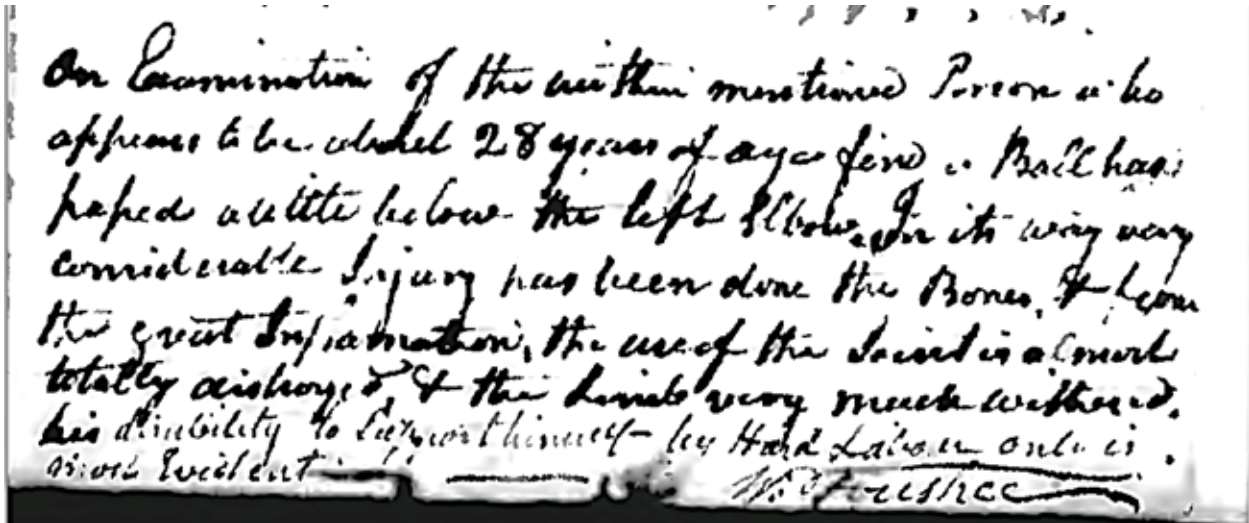 On Examination of the within mentioned Person who
appears to be about 28 years of age find a Ball has
passed a little below the left Elbow, In its way very
considerable Injury has been done the Bones, & from
the great Inflamation, the use of the Joint is almost
totally distroyed, & the Limb very much withered.
his disability to Support himself by Hard Labour only is
most Evident
Wm Foushee